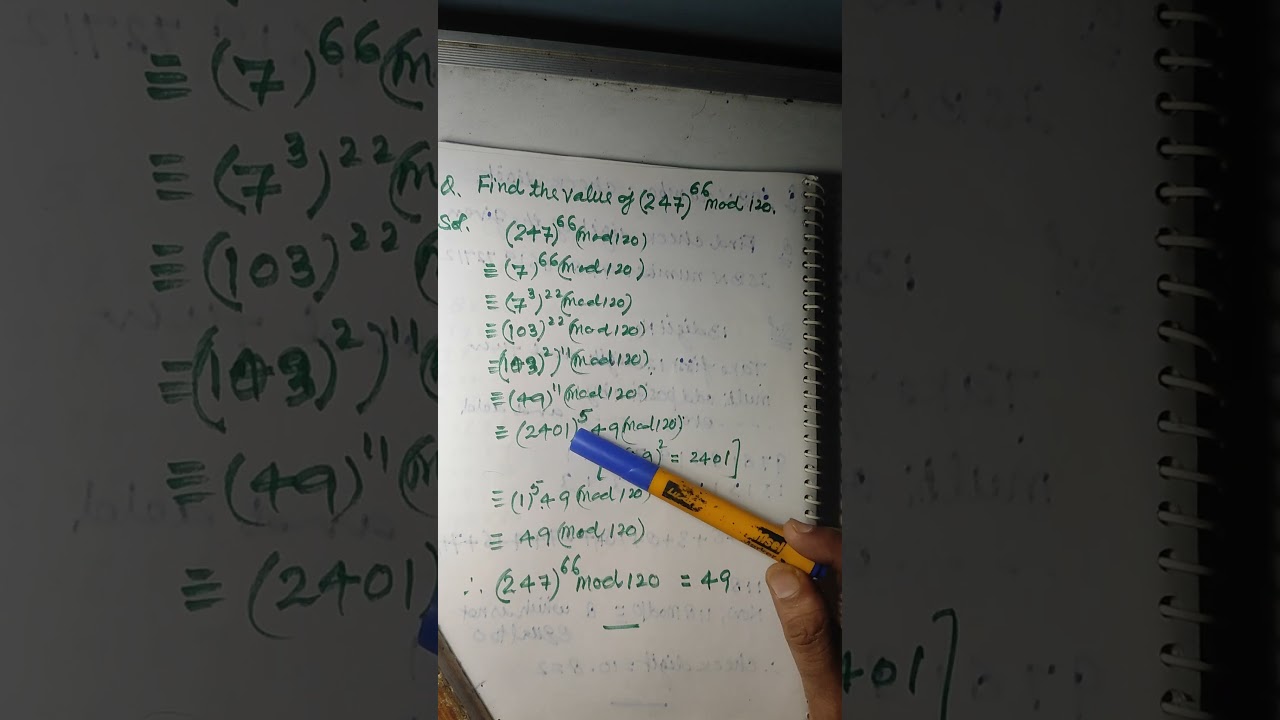 Q. Find the value of (247)^66 mod 120.
Sol. (247)^66 (mod 120)
≡ (7)^66 (mod 120)
≡ (7^3)^22 (mod 120)
≡ (103)^22 (mod 120)
≡ (103)^2)^11 (mod 120)
≡ (49)^11 (mod 120)
≡ (2401)^5 49 (mod 120)
9)^2 = 2401]
≡ (1)^5 49 (mod 120)
≡ 49 (mod 120)
∴ (247)^66 mod 120 = 49.